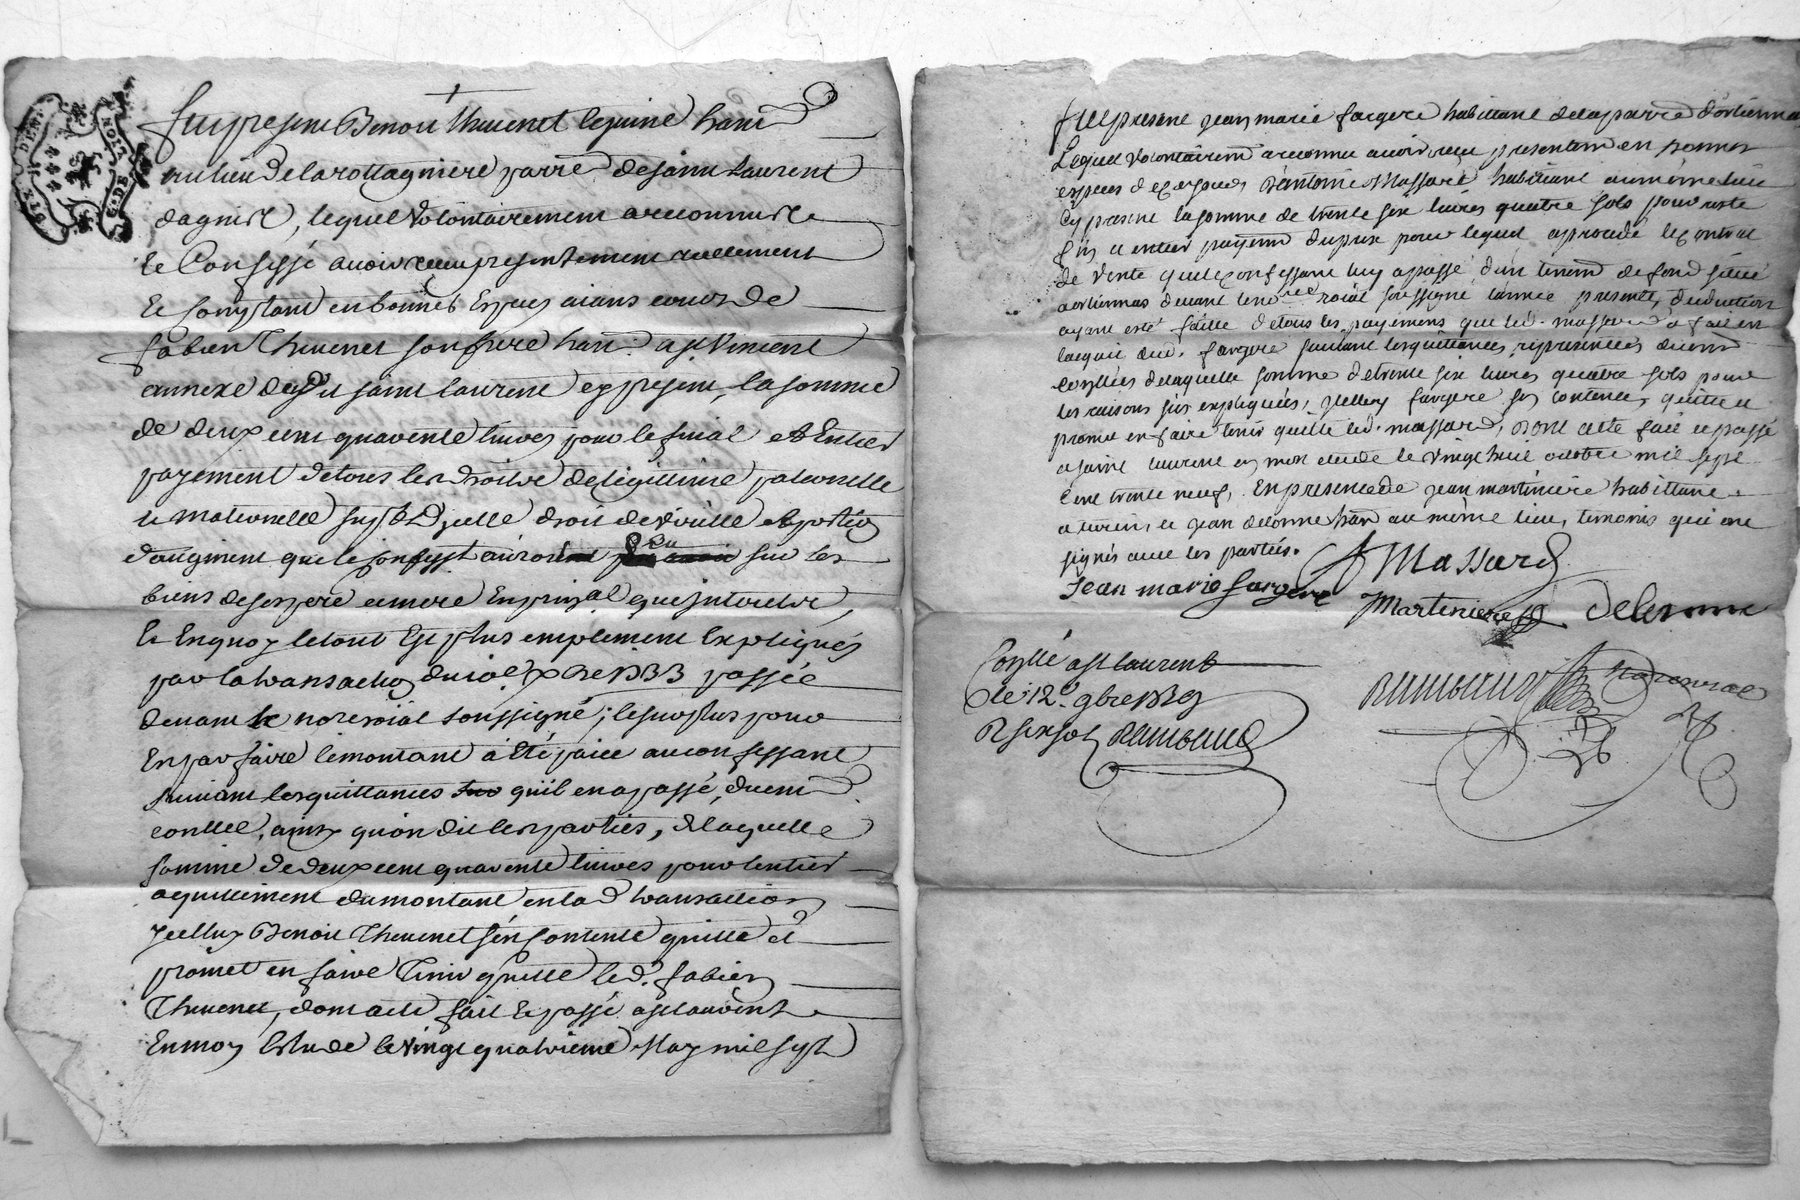 GEN. DE LION
Fut present Benoit Thevenet le juine hant
au lieu de la rottagniere parre de saint Laurent
dagniel, lequel volontairement a reconnu &
et Confessé avoir receu presentement reellement
et comptant en bonnes Especes aians cours de
fabien Thevenet son frere hant a st Vincent
annexe dud saint laurent cy present, la somme
de deux cent quarente livres pour le final et Entier
payement de tous les droits de legitime paternelle
et maternelle droit de virille et portion
d'augment que le confesst auroit peu sur les
biens de ses pere et mere En prinpal que interets,
et En quoy le tout Est plus emplement Expliqués
par la transaction du xbre 1733 passée
devant le nore roial soussigné; le surplus pour
En parfaire le montant a Eté paié au confessant
suivant les quittances quil en a passé, duemt
conllé, ainsy qu'on dit les parties, de laquelle
somme de deux cent quarente livres pour l'entier
aquittement du montant en lad transaction
Jcelluy Benoit Thevenet s'en contente quitte et
promet en faire tenir quitte led. fabien
Thevenet, dont acte fait et passé a st laurent
En mon Etude le vingt quatrieme May mil sept
Fut present jean marie fargere habittant de la parre d'ortiennas
Lequel volontairemt a reconnu avoir receu presentemt en bonnes
especes d'antoine Massard habittant au même lieu
Cy present la somme de trente six livres quatre sols pour reste
fin et entier payemt du prix pour lequel a procedé le contrat
de vente que le confessant luy a passé d'un tenemt de fond situé
a ortiennas devant le nore roial soussigné l'année presente, deduction
ayant esté faitte de tous les payemens que led. massard a fait en
l'acquit dud. fargere suivant les quittances representées duemt
conllées de laquelle somme de trente six livres quatre sols pour
les raisons sus expliquées, jcelluy fargere se contente, quitte et
promet en faire tenir quitte led. massard, dont acte fait et passé
a saint laurent en mon etude le vingt huit octobre mil sept
cent trente neuf, En presence de jean martiniere habittant
a turin, et jean delorme hant au même lieu, temoins qui ont
signés avec les parties.
A Massard
Jean marie fargere
Martiniere delorme
Conllé a st laurent
le 12e 9bre 1739
R six sols Rambaud
Rambaud No. roial